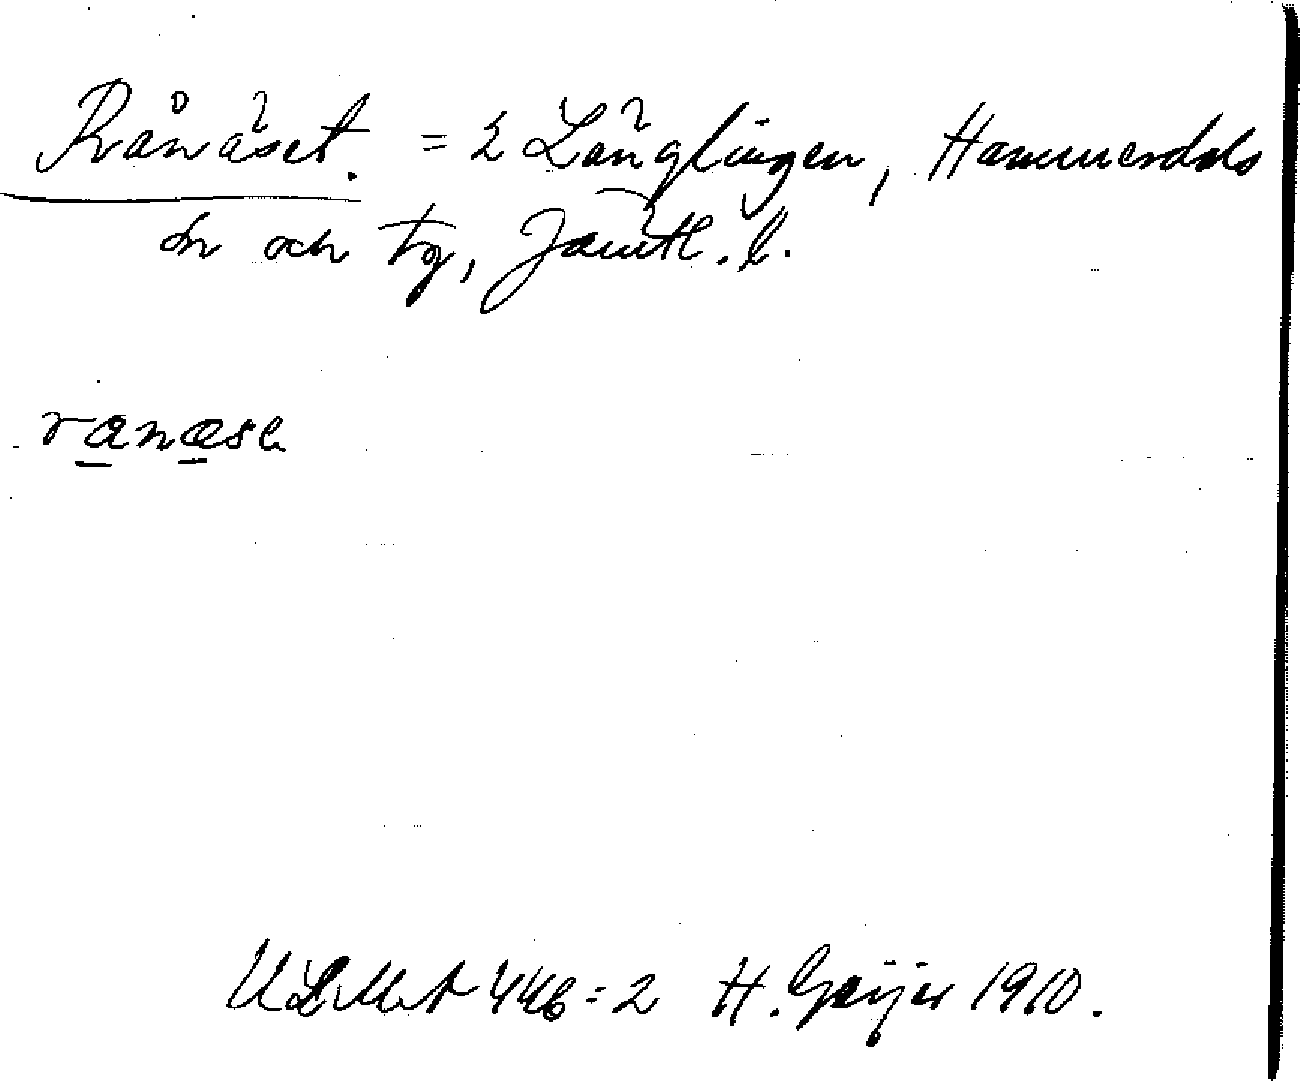 Rånäset. = i Långlingen, Hammerdals
sn och tg, Jämtl. l.
ranæse
446:2 H. Geijer 1910.